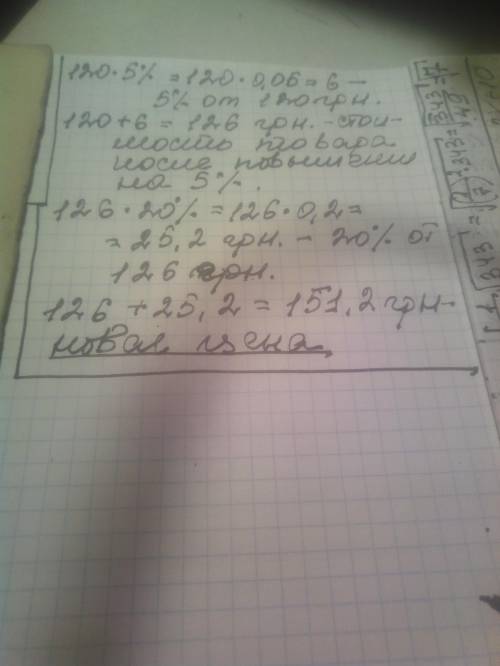 120·5% = 120·0,05 = 6 –
5% от 120 грн.
120+6 = 126 грн. – стои-
мость товара
после повышения
на 5%.
126·20% = 126·0,2 =
= 25,2 грн. – 20% от
126 грн.
126 + 25,2 = 151,2 грн –
новая цена